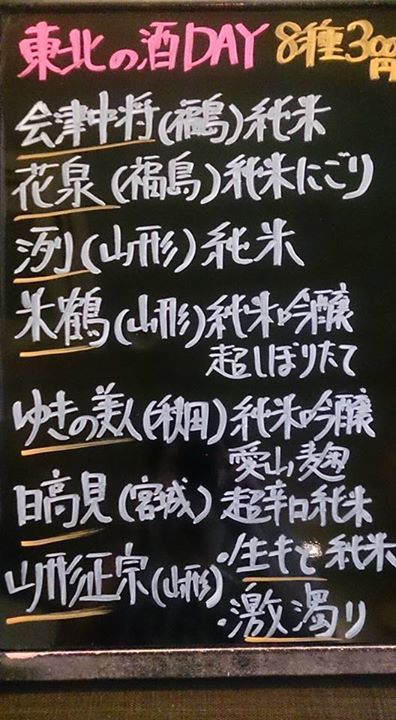 東北の酒DAY 8種300円
会津中将(福島)純米
花泉(福島)純米にごり
洌(山形)純米
米鶴(山形)純米吟醸
超しぼりたて
ゆきの美人(秋田)純米吟醸
愛山麹
日高見(宮城)超辛口純米
山形正宗(山形)・生もと純米
・激濁り